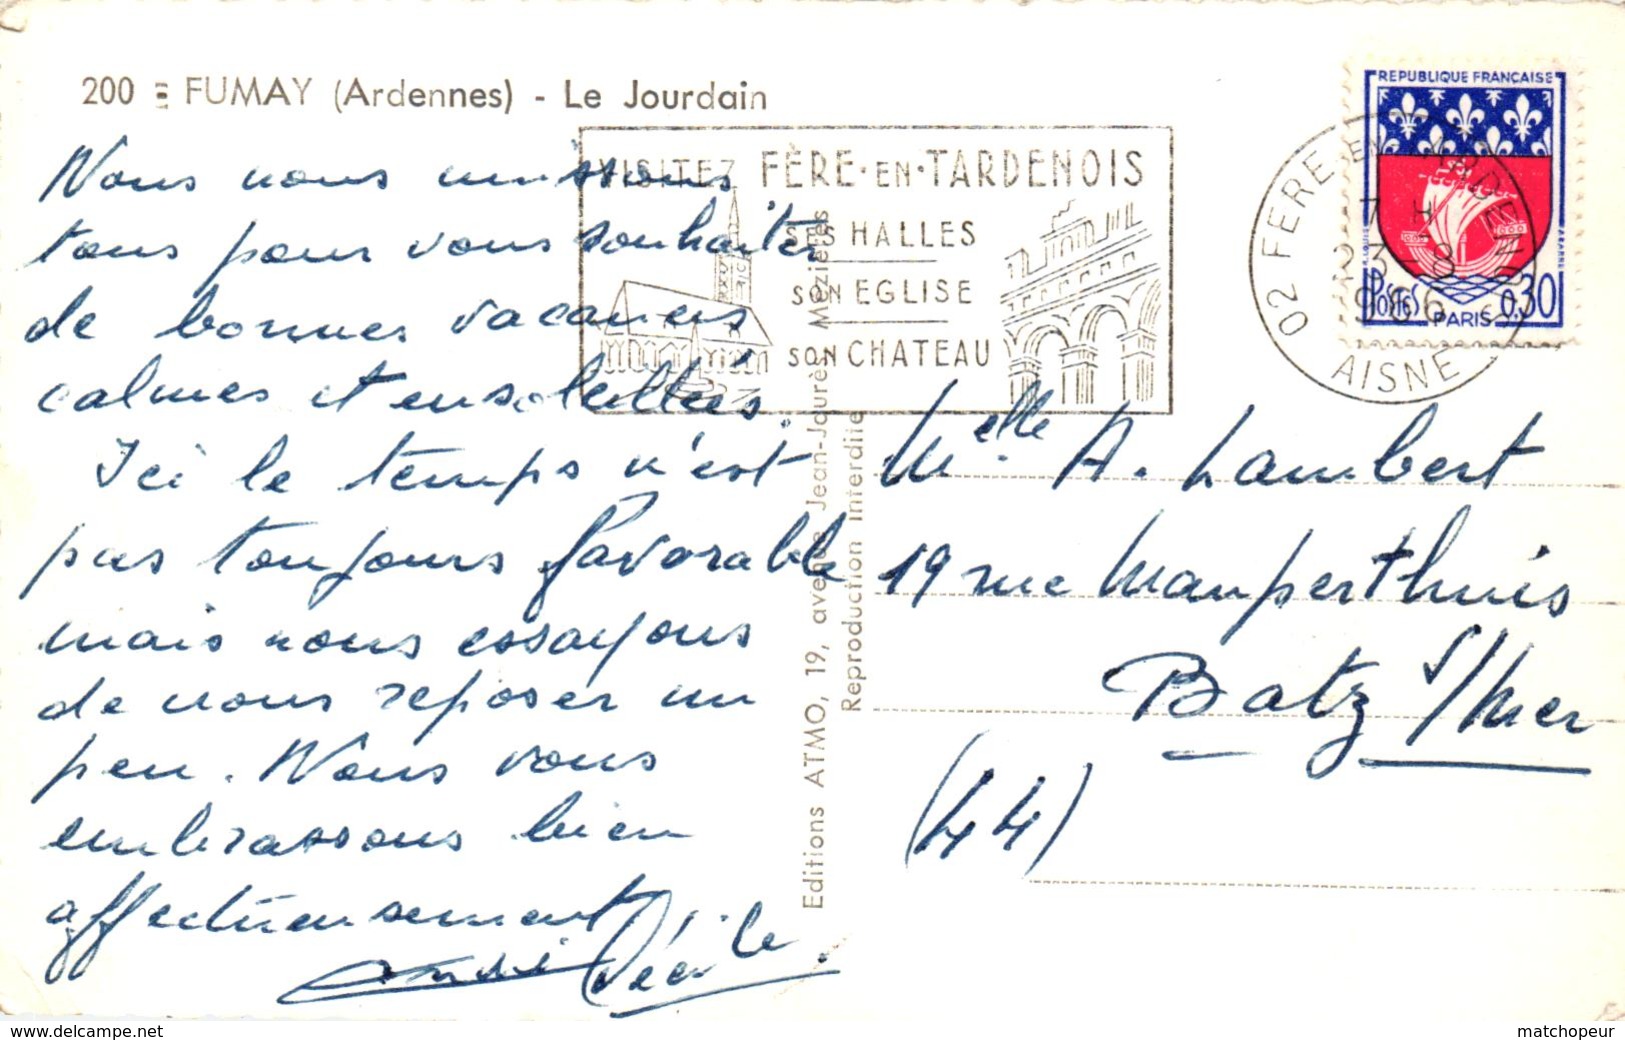 200 - FUMAY (Ardennes) - Le Jourdain
Nous nous unissons
tous pour vous souhaiter
de bonnes vacances
calmes et ensoleillées.
Ici le temps n'est
pas toujours favorable
mais nous essayons
de nous reposer un
peu. Nous vous
embrassons bien
affectueusement
André Cécile.
VISITEZ FÈRE·EN·TARDENOIS
SES HALLES
SON EGLISE
SON CHATEAU
Editions ATMO, 19, avenue Jean-Jaurès Mézières
Reproduction interdite
REPUBLIQUE FRANÇAISE
POSTES
0,30
PARIS
02 FERE EN TARDENOIS
7 H
23-8
1966
AISNE
Melle A. Lambert
19 rue Mauperthuis
Batz s/Mer
(44)
www.delcampe.net
matchopeur